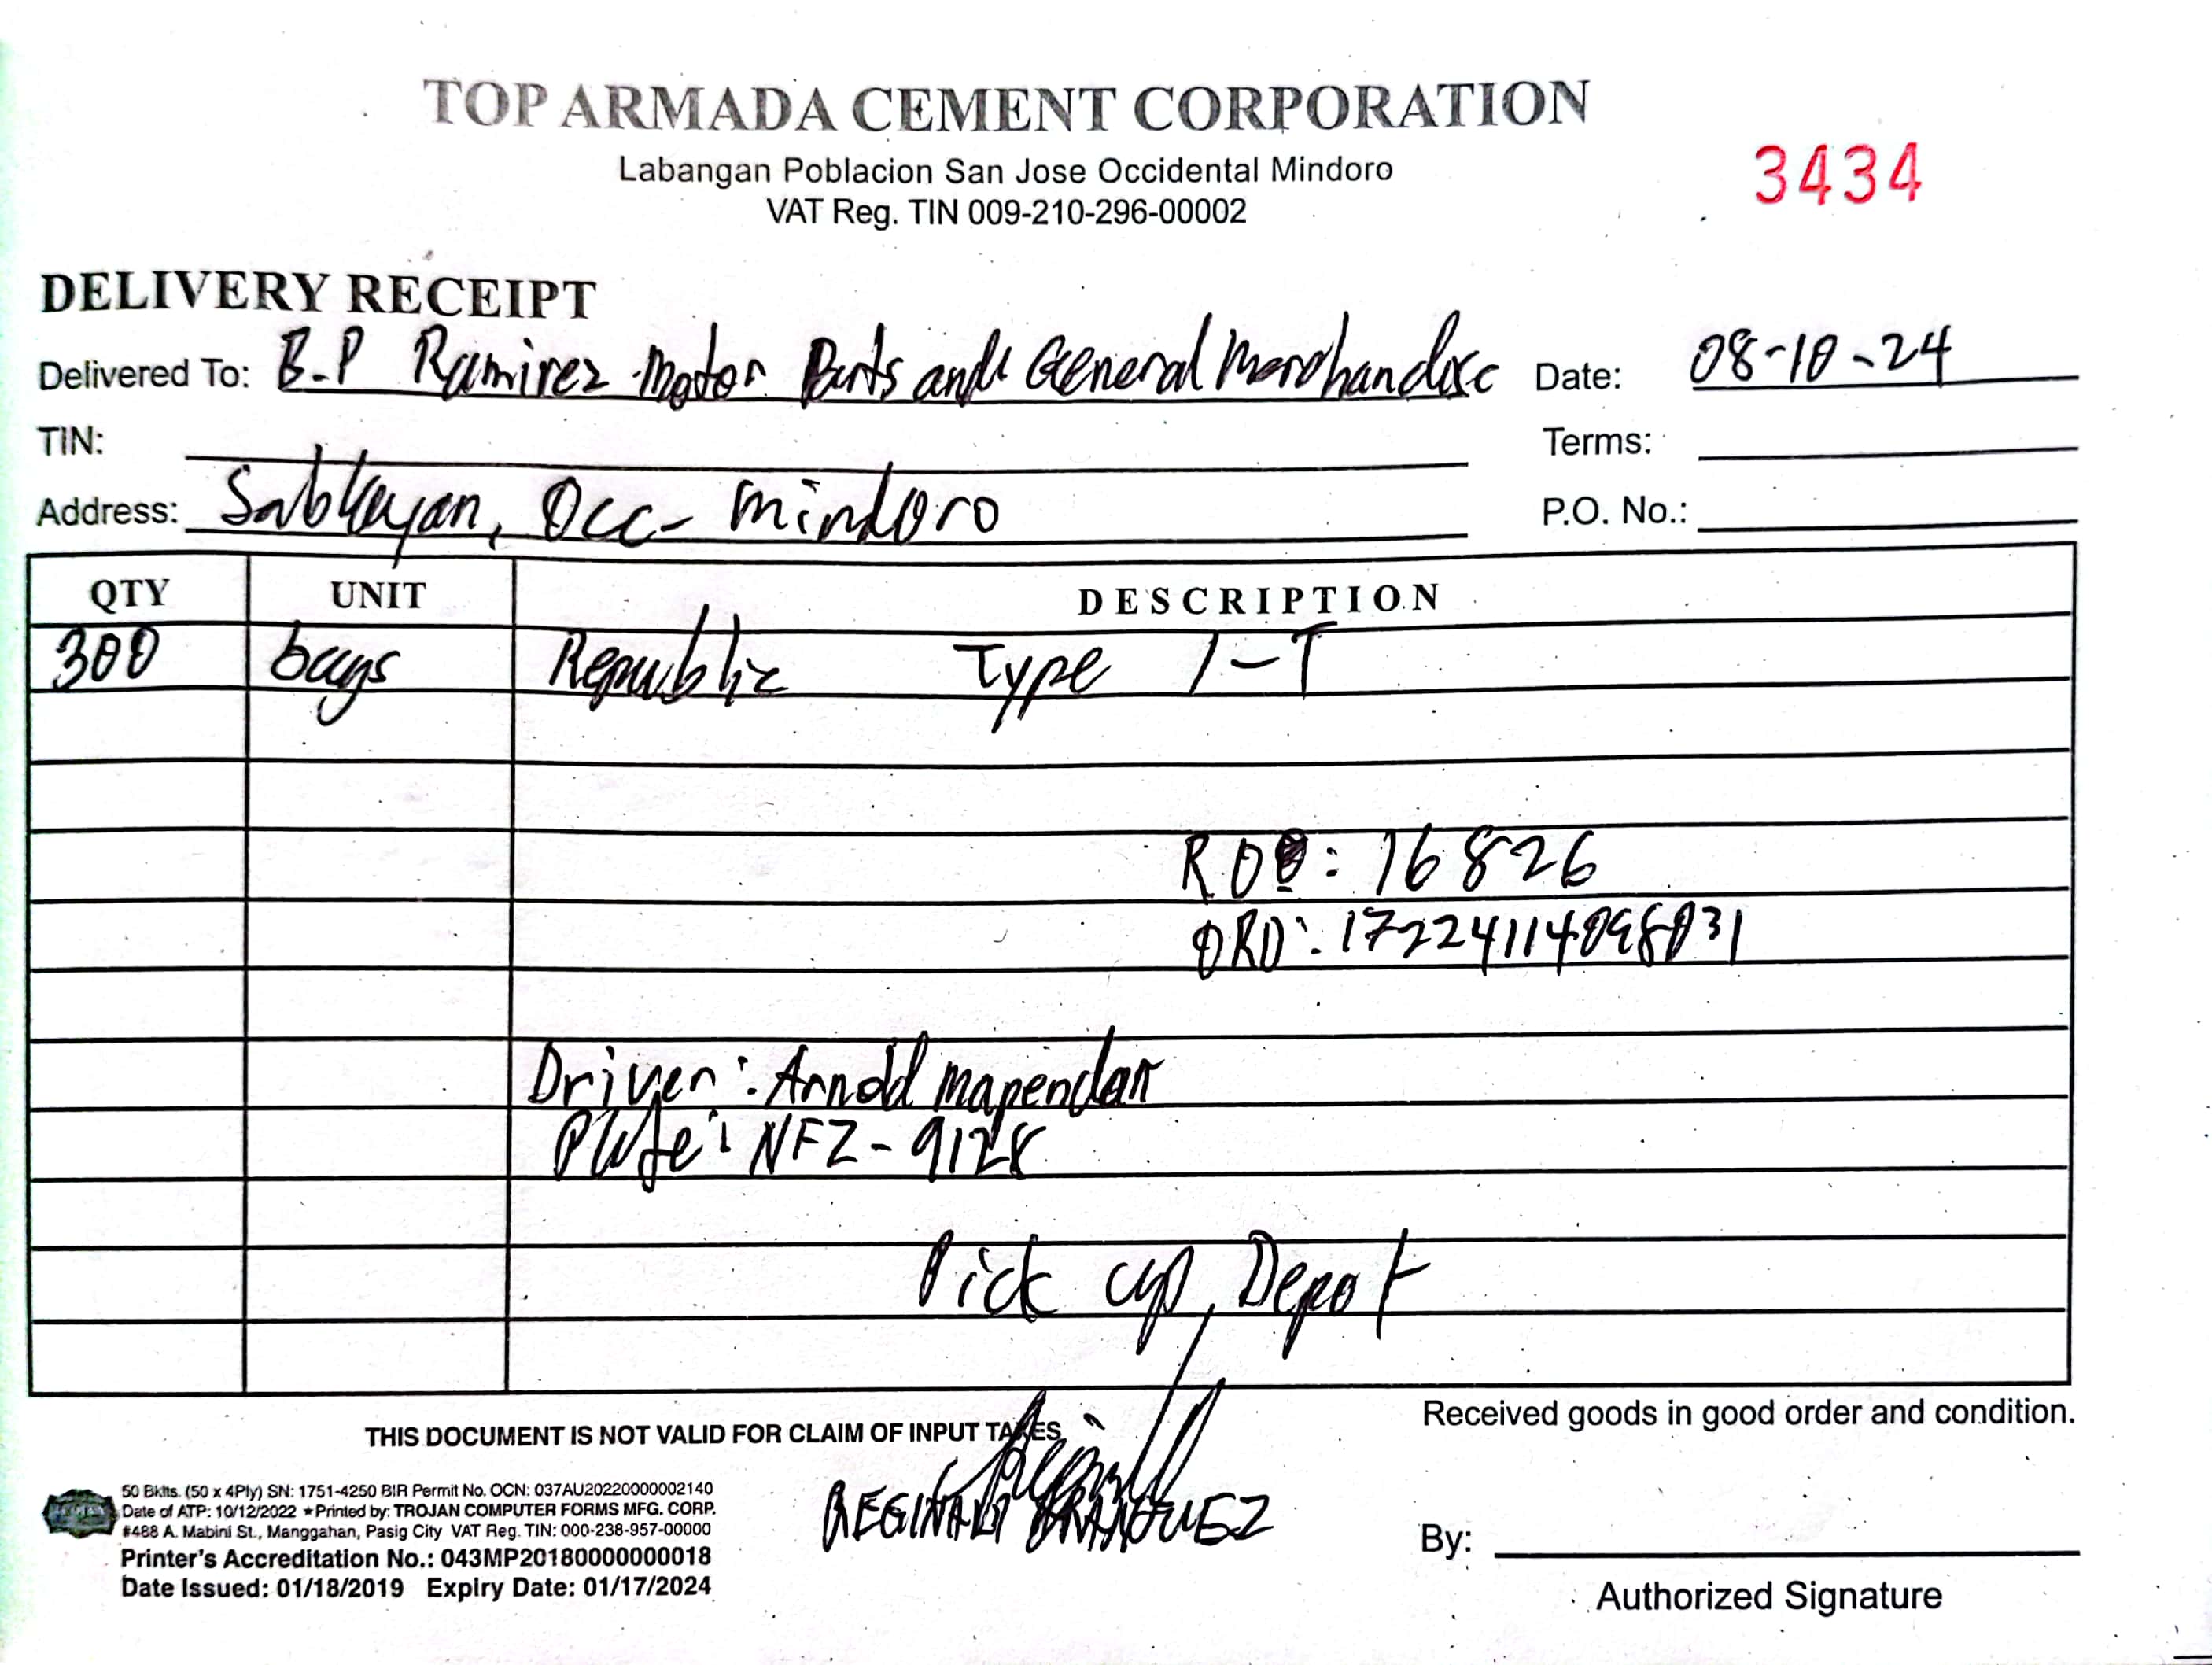 TOP ARMADA CEMENT CORPORATION
Labangan Poblacion San Jose Occidental Mindoro
VAT Reg. TIN 009-210-296-00002
3434
DELIVERY RECEIPT
Delivered To: B.P Ramirez Motor Parts and General Merchandise Date: 08-10-24
TIN: Terms:
Address: Sablayan, Occ- Mindoro P.O. No.:
QTY UNIT DESCRIPTION
300 bags Republic Type 1-T
: 16826
ORD: 17224114098031
Driver: Arnold
Plate: NFZ-9128
Pick up, Depot
THIS DOCUMENT IS NOT VALID FOR CLAIM OF INPUT TAXES
Received goods in good order and condition.
50 Bklts. (50 x 4Ply) SN: 1751-4250 BIR Permit No. OCN: 037AU20220000002140
Date of ATP: 10/12/2022 ★Printed by: TROJAN COMPUTER FORMS MFG. CORP.
#488 A. Mabini St., Manggahan, Pasig City VAT Reg. TIN: 000-238-957-00000
Printer's Accreditation No.: 043MP20180000000018
Date Issued: 01/18/2019 Expiry Date: 01/17/2024
By:
Authorized Signature